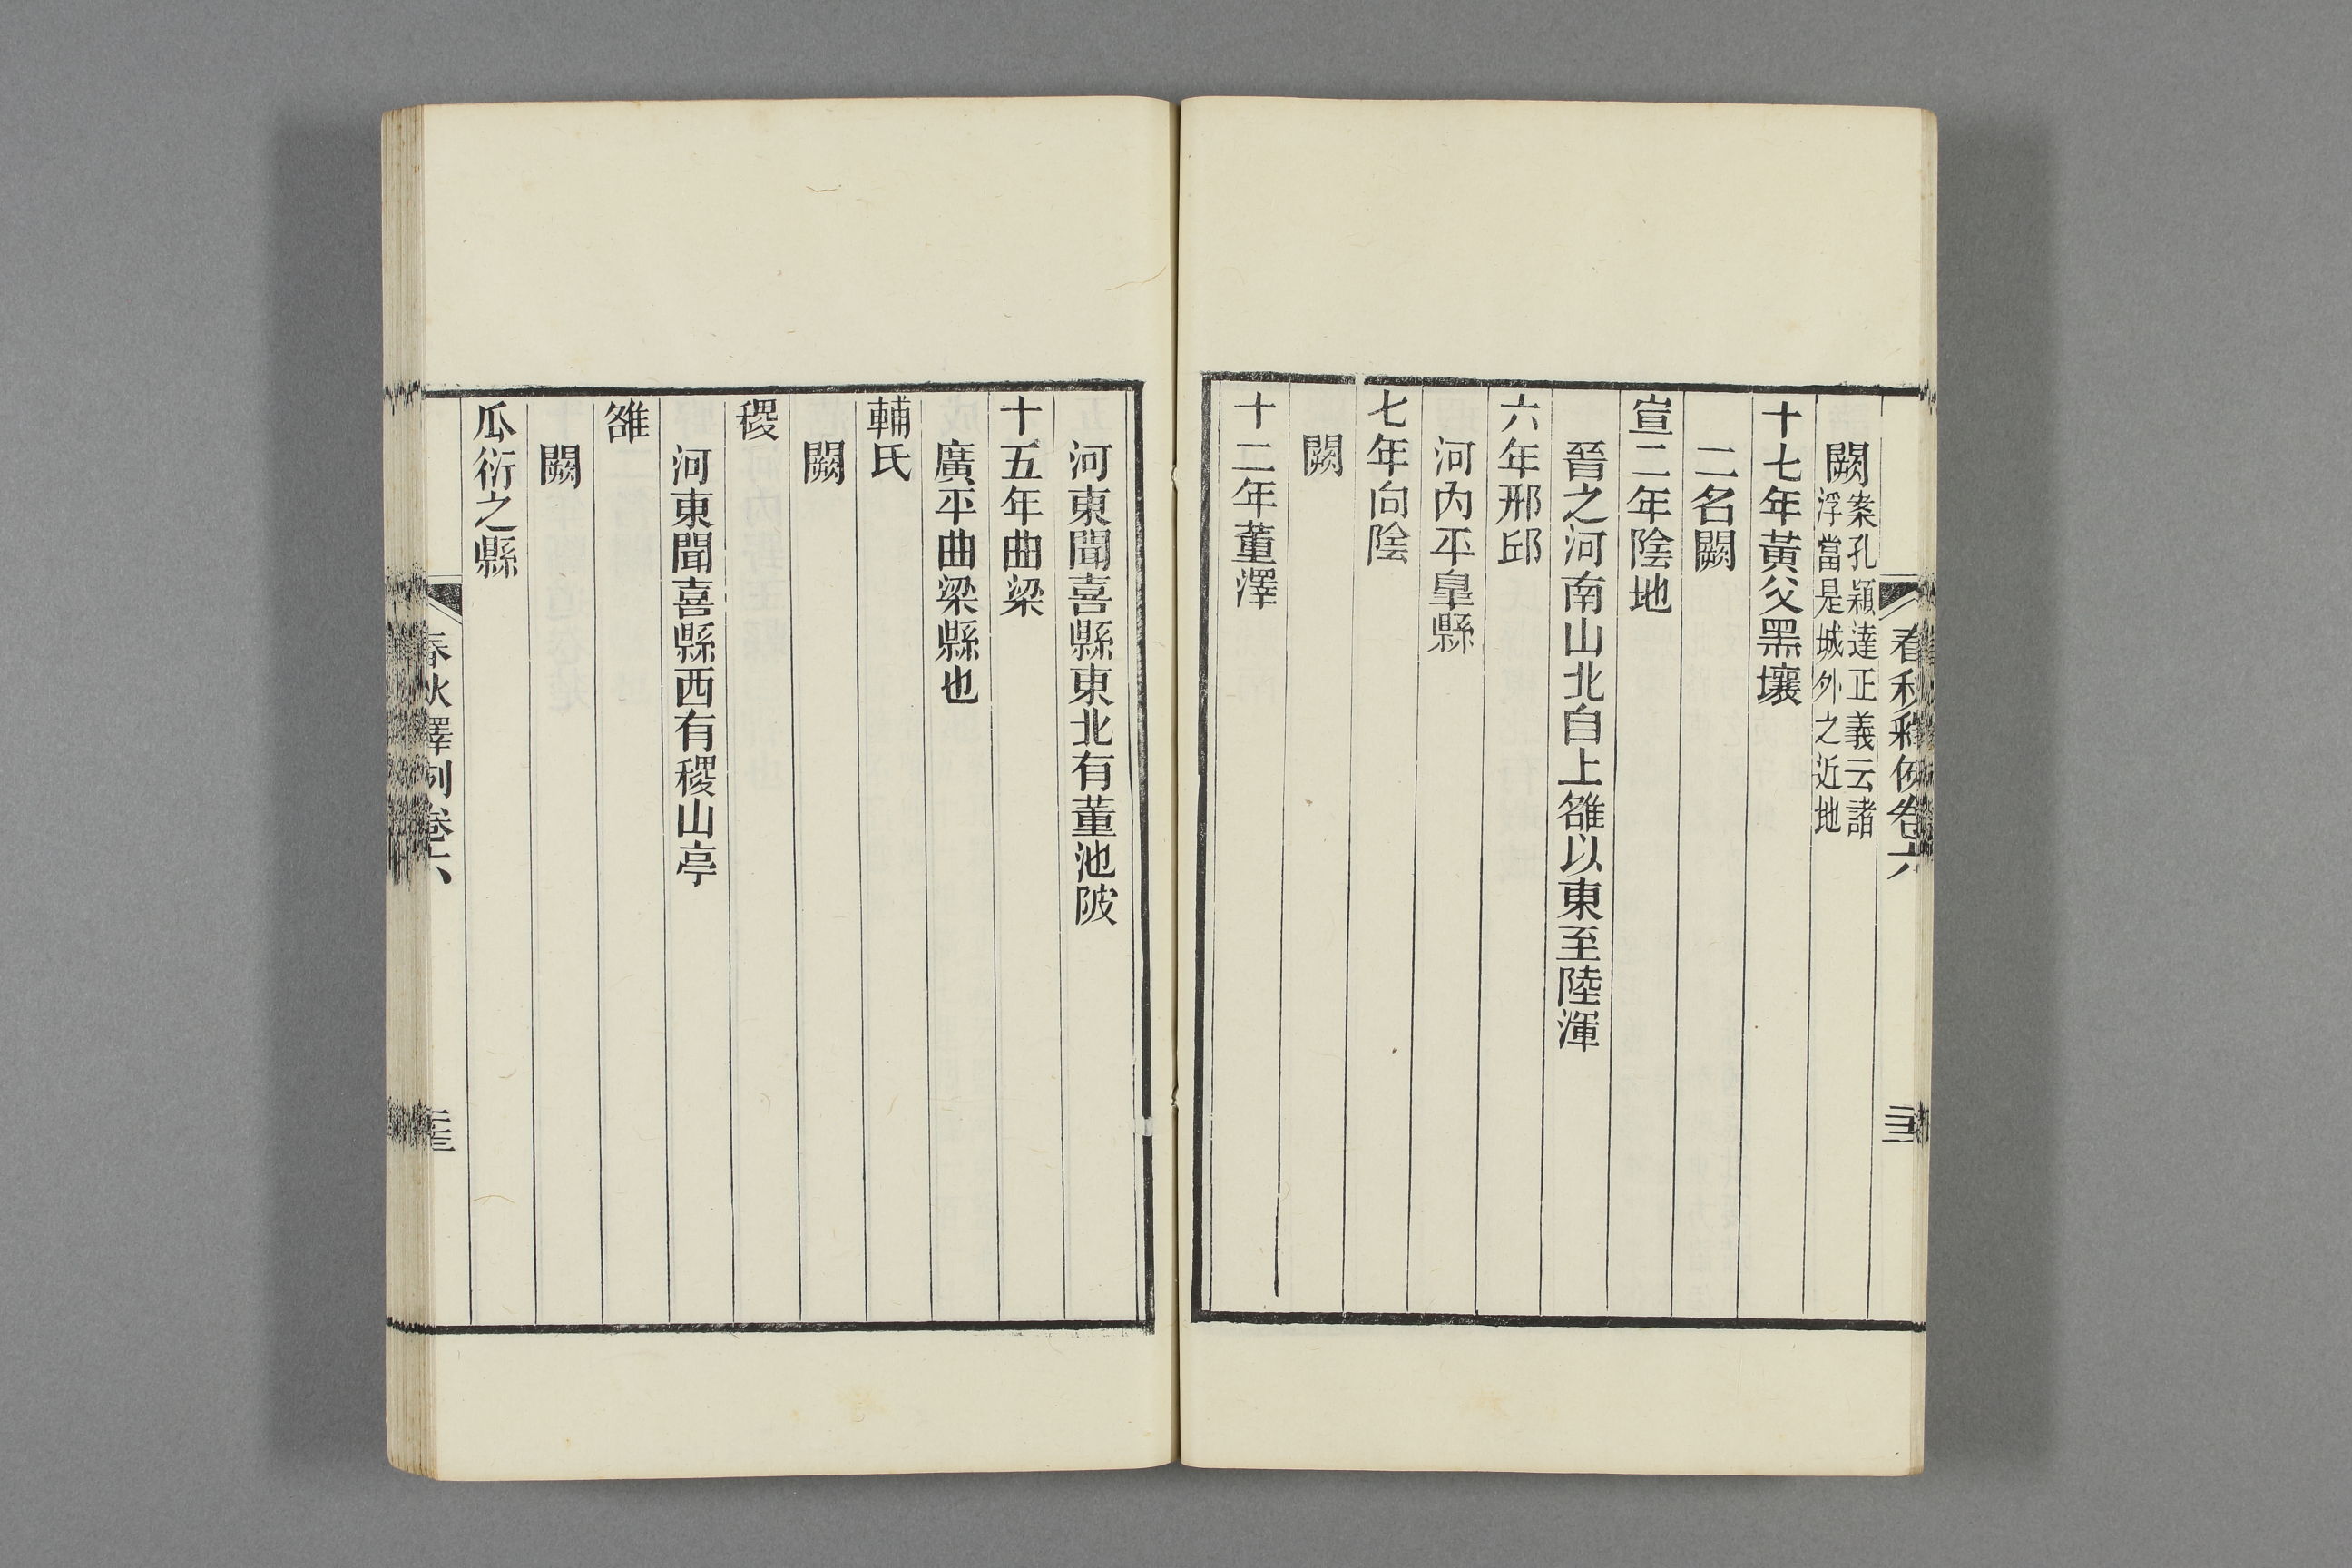 春秋釋例卷六
闕案孔穎達正義云諸
浮當是城外之近地
十七年黃父黑壤
二名闕
宣二年陰地
晉之河南山北自上雒以東至陸渾
六年邢邱
河內平皐縣
七年向陰
闕
十二年董澤
河東聞喜縣東北有董池陂
十五年曲梁
廣平曲梁縣也
輔氏
闕
稷
河東聞喜縣西有稷山亭
雒
闕
瓜衍之縣
春秋釋例卷六